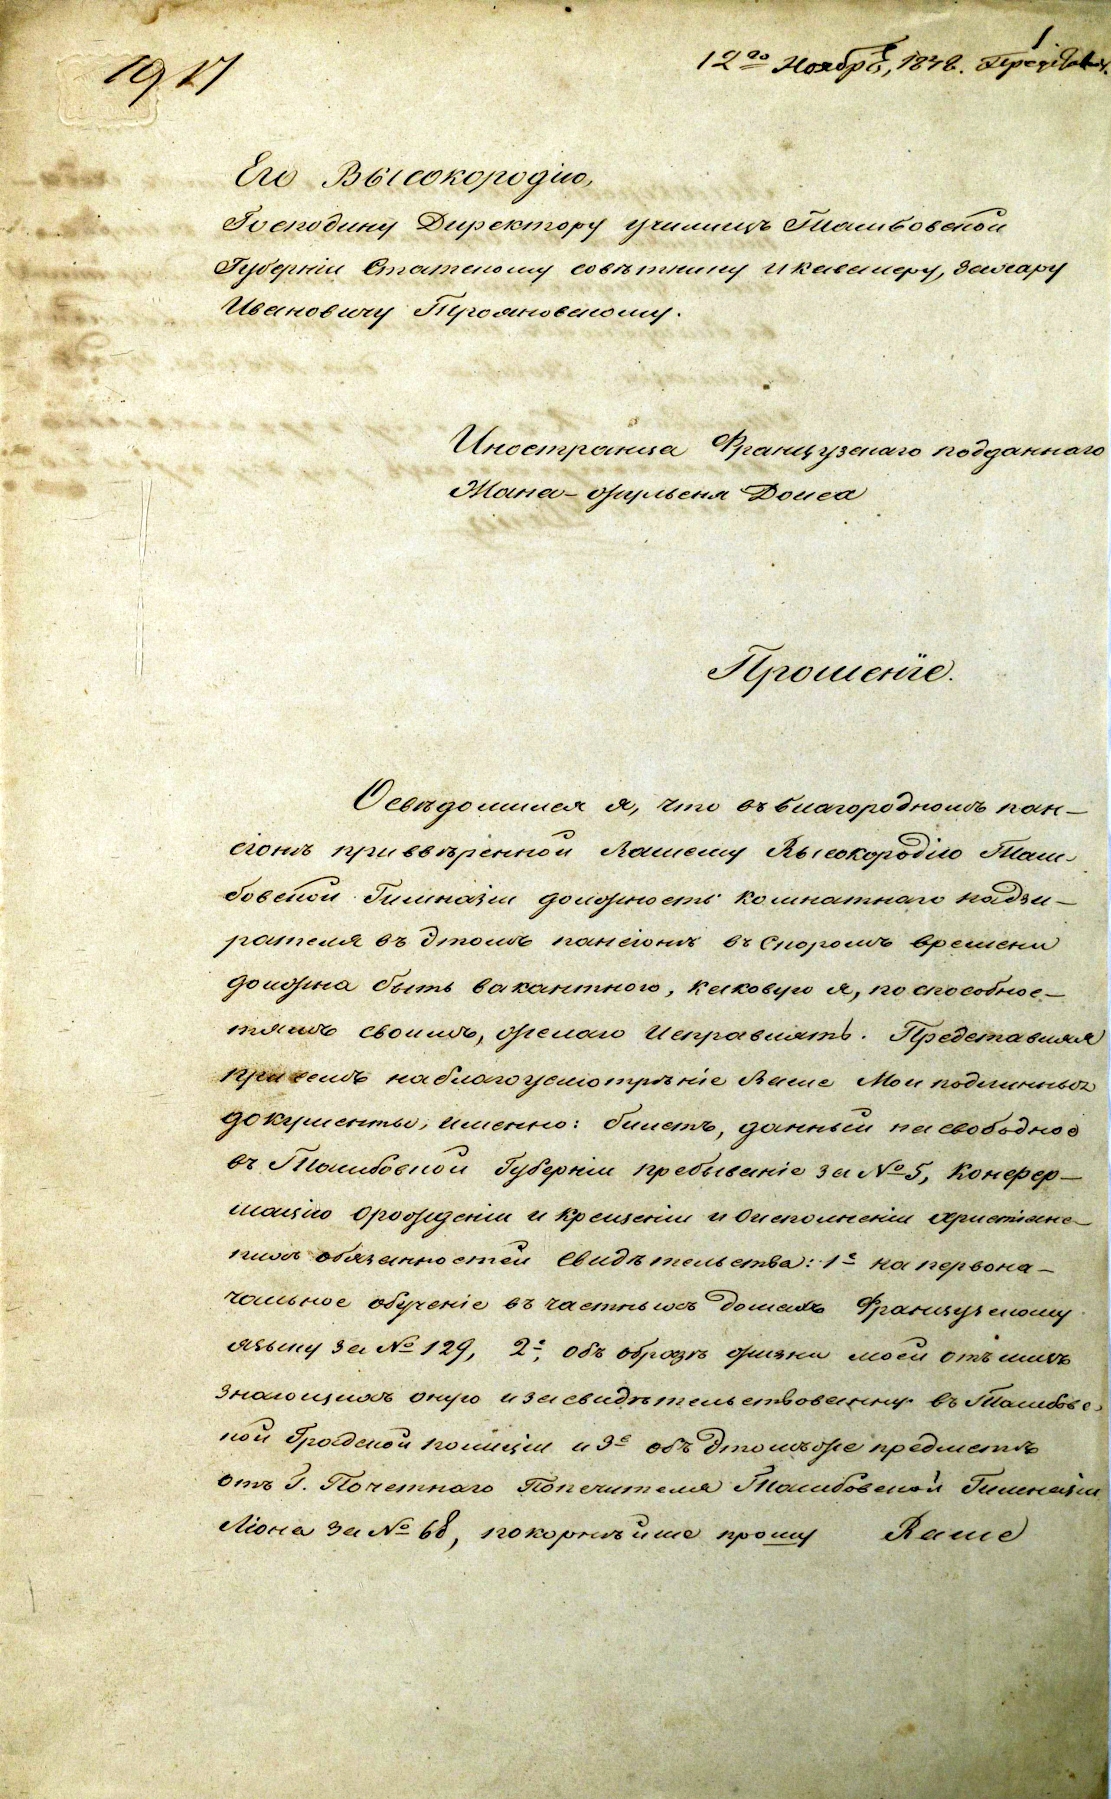 1917
1
12го Ноября, 1848.
Его Высокородію,
Господину Директору училищъ Тамбовской
Губерніи Статскому совѣтнику и кавалеру, Захару
Ивановичу Трояновскому.
Иностранца Французскаго подданнаго
Жана-Жульена Доиса
Прошеніе.
Освѣдомился я, что въ благородномъ пан-
сіонѣ при ввѣренной Вашему Высокородію Там-
бовской Гимназіи должность комнатнаго надзи-
рателя въ этомъ пансіонѣ въ скоромъ времени
должна быть вакантною, каковую я, по способнос-
тямъ своимъ, желаю исправлять. Представляя
при семъ на благоусмотрѣніе Ваше мои подлинные
документы, именно: билетъ, данный на свободное
въ Тамбовской Губерніи пребываніе за № 5, конфер-
мацію о рожденіи и крещеніи и о исполненіи христіанс-
кихъ обязанностей свидѣтельства: 1е на первона-
чальное обученіе въ частныхъ домахъ Французскому
языку за № 129, 2е, объ образѣ жизни моей отъ лицъ
знающихъ оную и засвидѣтельствованну въ Тамбовс-
кой Градской полиціи и 3е объ этомъ же предметѣ
отъ Г. Почетнаго Попечителя Тамбовской Гимназіи
Ліона за № 68, покорнѣйше прошу Ваше